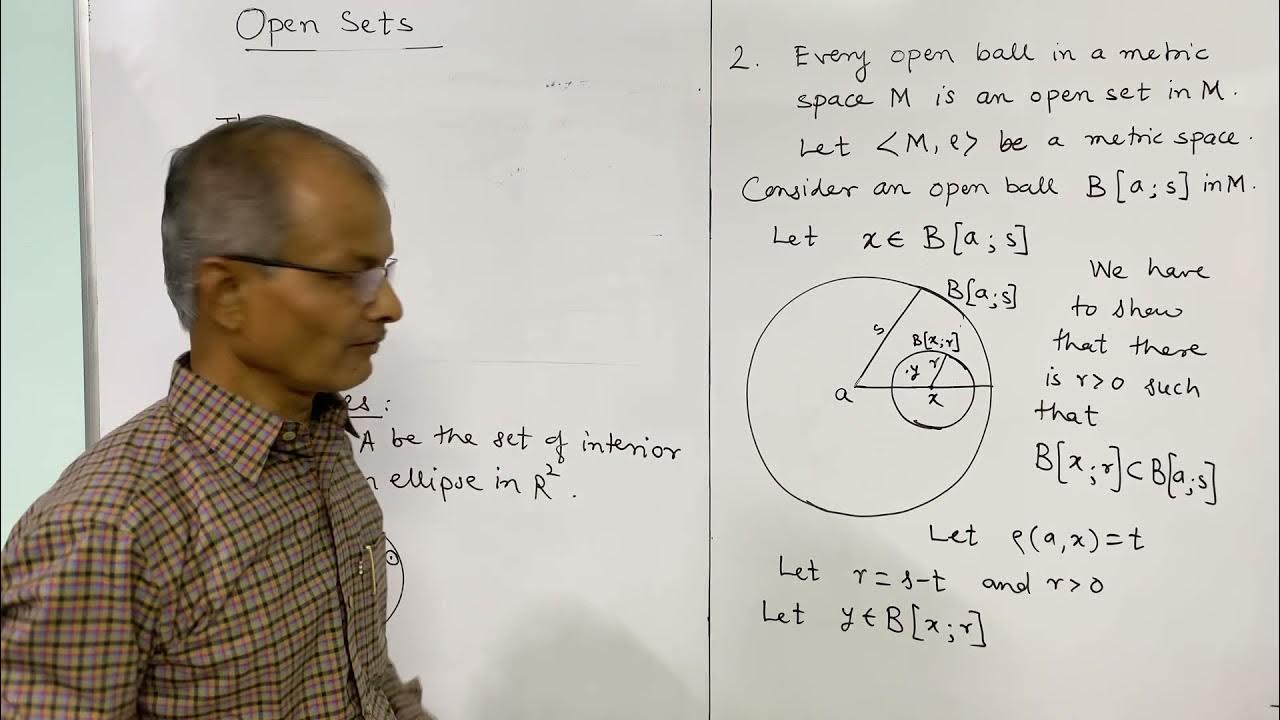 Open Sets
A be the set of interior
ellipse in R².
2. Every open ball in a metric
space M is an open set in M.
Let <M, ρ> be a metric space.
Consider an open ball B[a;s] in M.
Let x ∈ B[a;s]
B[a;s]
s
B[x;r]
.y r
a
x
We have
to show
that there
is r>0 such
that
B[x;r] ⊂ B[a;s]
Let ρ(a,x)=t
Let r = s-t and r>0
Let y ∈ B[x;r]